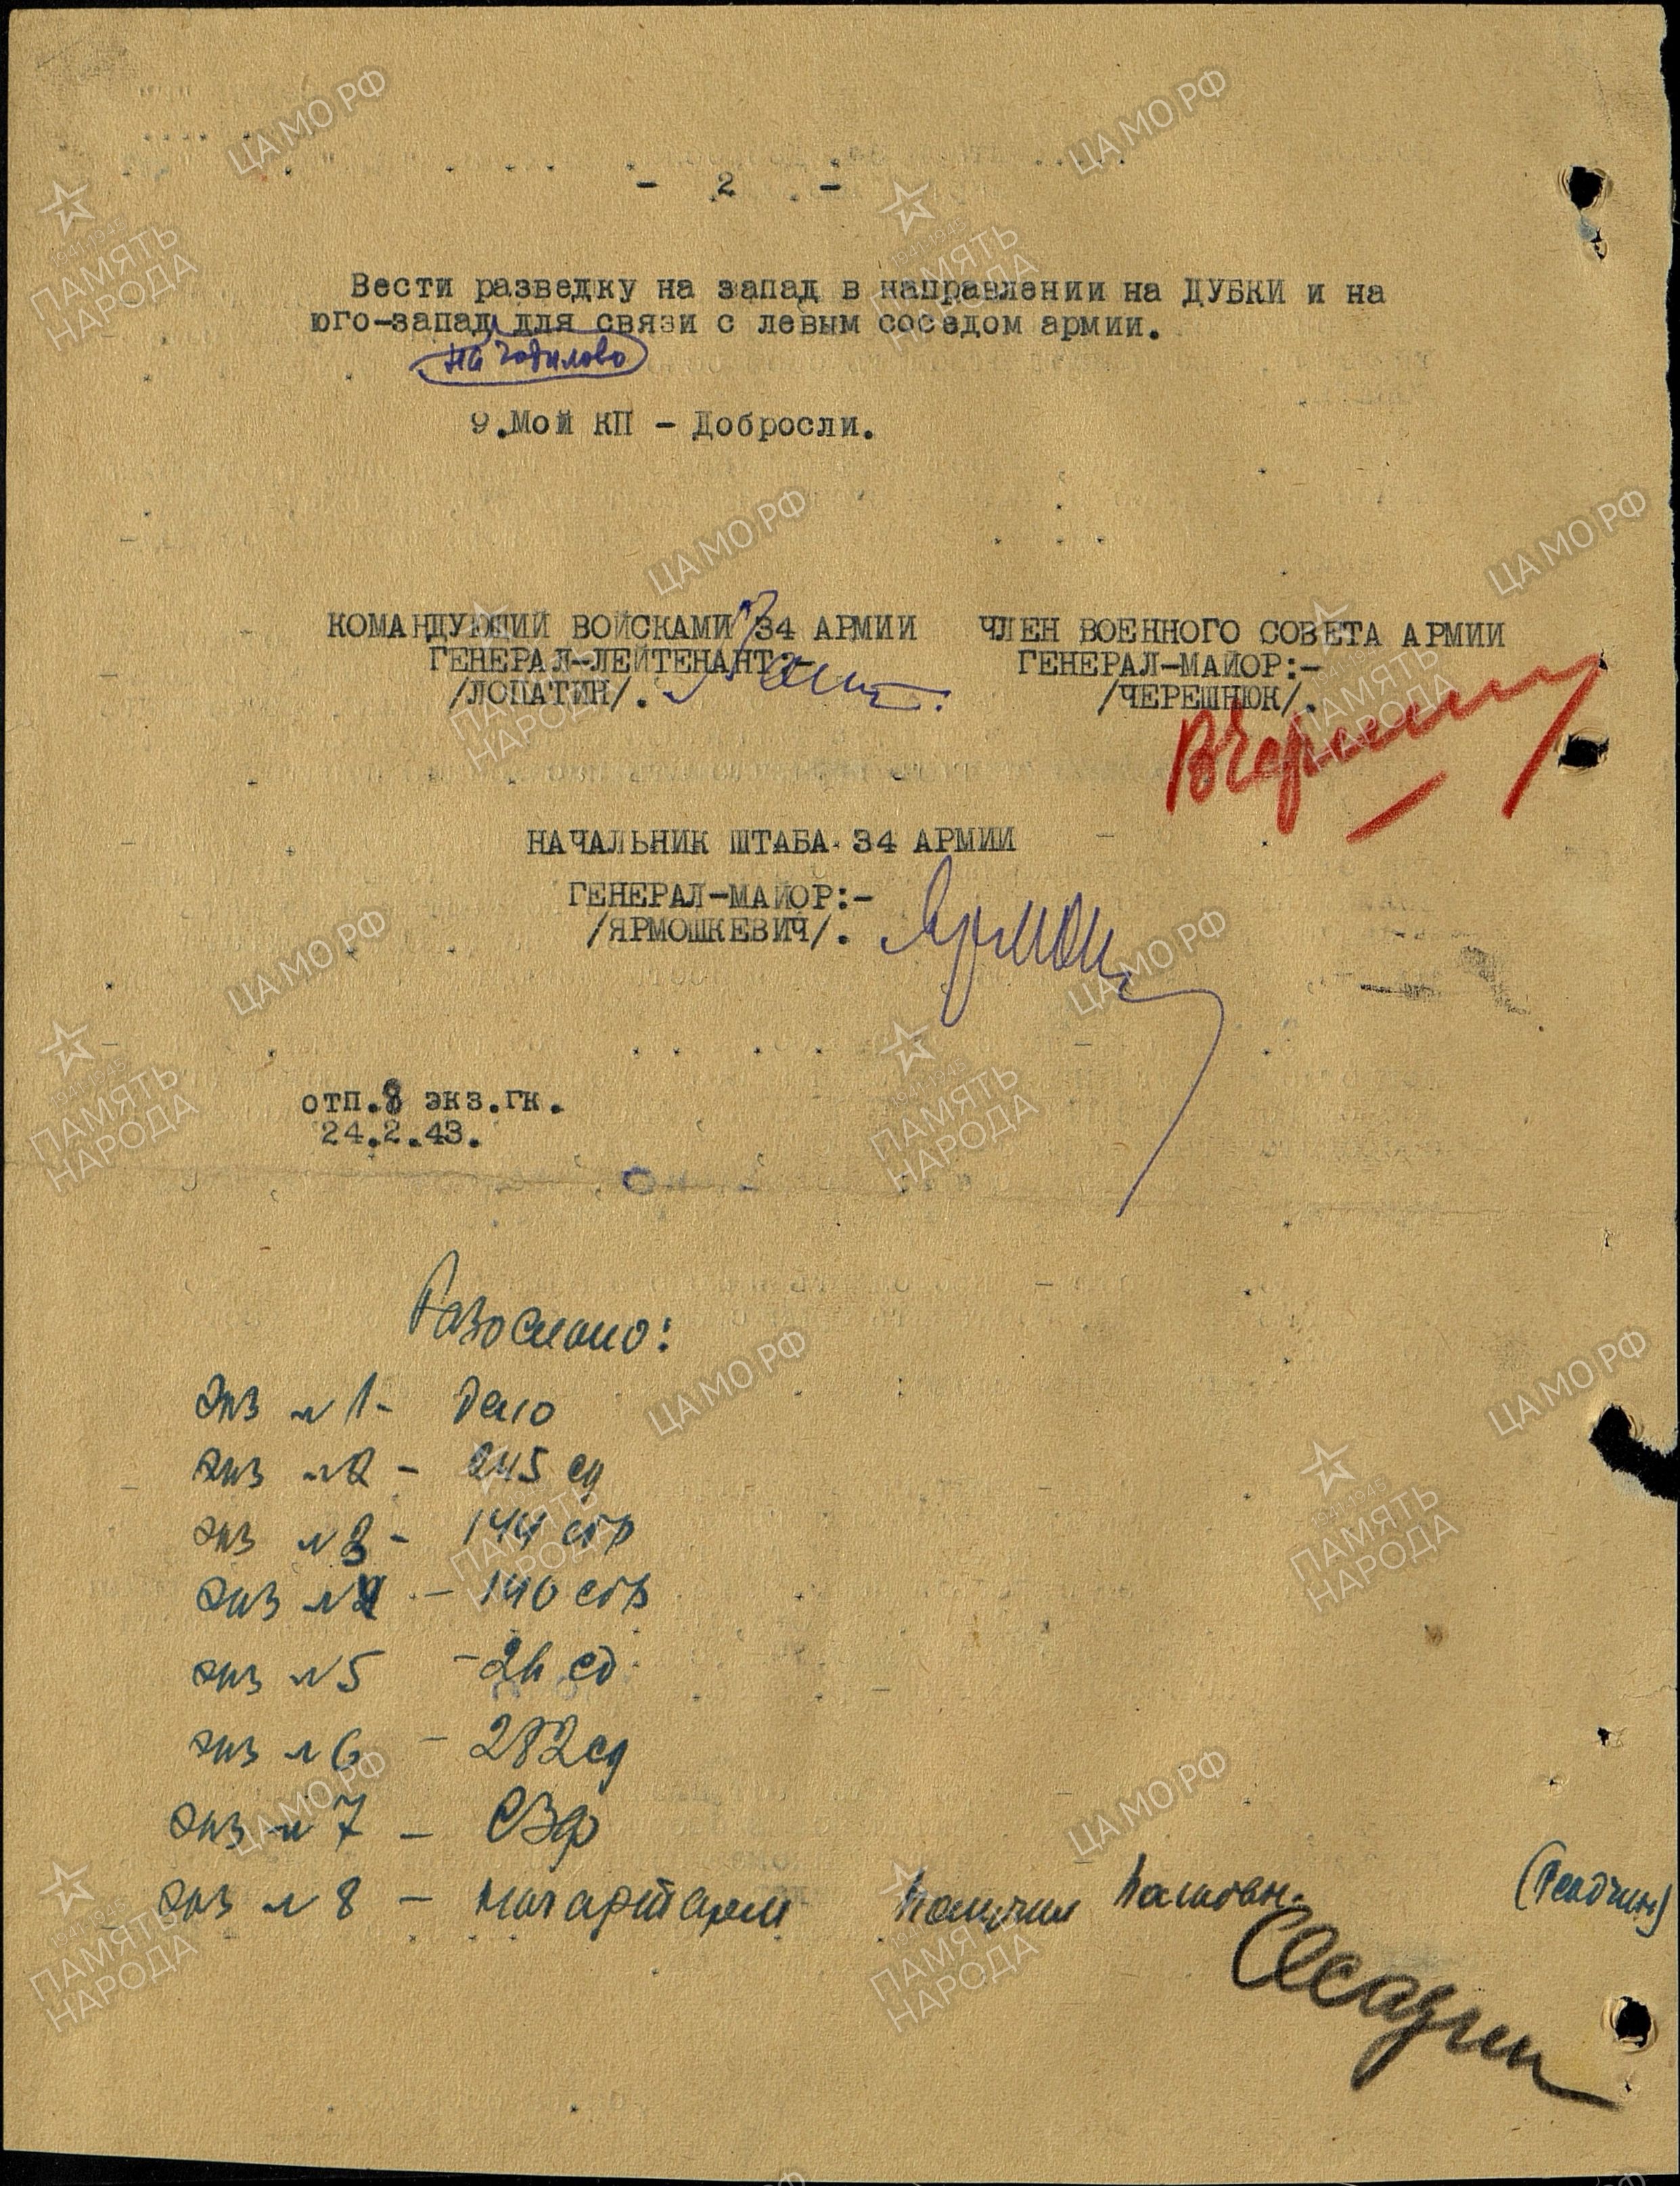 - 2 -
Вести разведку на запад в направлении на ДУБКИ и на
юго-запад для связи с левым соседом армии.
на
9.Мой КП - Добросли.
КОМАНДУЮЩИЙ ВОЙСКАМИ 34 АРМИИ
ГЕНЕРАЛ-ЛЕЙТЕНАНТ:-
/ЛОПАТИН/.
ЧЛЕН ВОЕННОГО СОВЕТА АРМИИ
ГЕНЕРАЛ-МАЙОР:-
/ЧЕРЕШНЮК/.
НАЧАЛЬНИК ШТАБА 34 АРМИИ
ГЕНЕРАЛ-МАЙОР:-
/ЯРМОШКЕВИЧ/.
отп.8 экз.гк.
24.2.43.
Разослано:
экз №1- дело
экз №2 - 245 сд
экз №3 - 144 сбр
экз №4 - 140 сбр
экз №5 - сд
экз №6 - 282 сд
экз №7 - СЗФ
экз №8 - Получил
ЦАМО РФ
1941-1945
ПАМЯТЬ
НАРОДА